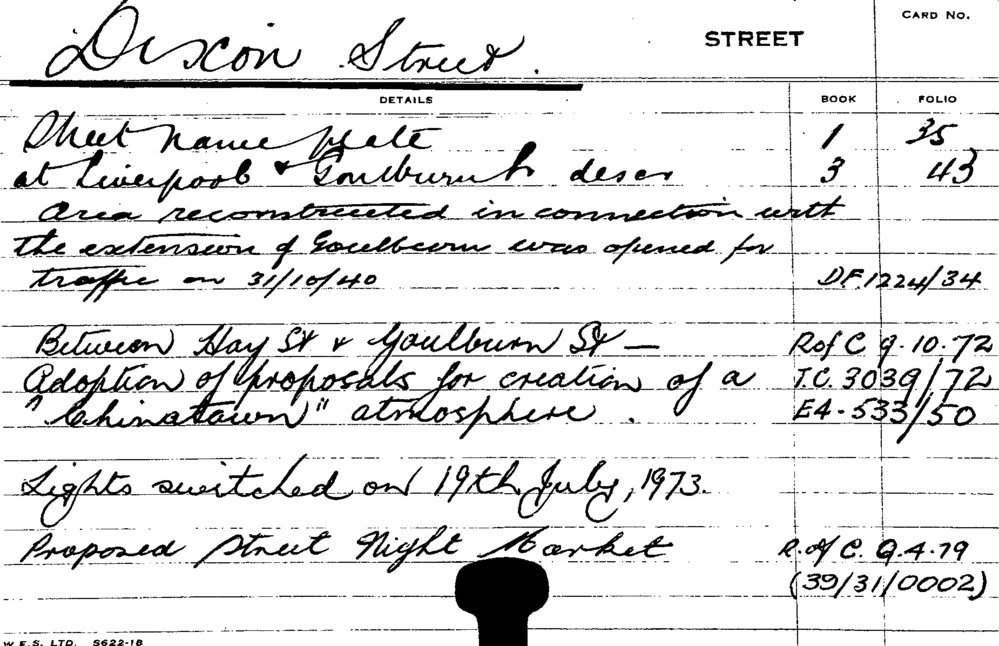 CARD NO.
Dixon Street. STREET
DETAILS BOOK FOLIO
Street name plate 1 35
at Liverpool & Goulburn 3 43
Area reconstructed in connection with
the extension of Goulburn was opened for
traffic on 31/10/40 D.F. 1224/34
Between Hay St & Goulburn St — R of C 9.10.72
Adoption of proposals for creation of a T.C. 3039/72
"Chinatown" atmosphere. E4-533/50
Lights switched on 19th July, 1973.
Proposed Street Night Market R. of C. 9.4.79
(39/31/0002)
W.E.S. LTD. S622-18